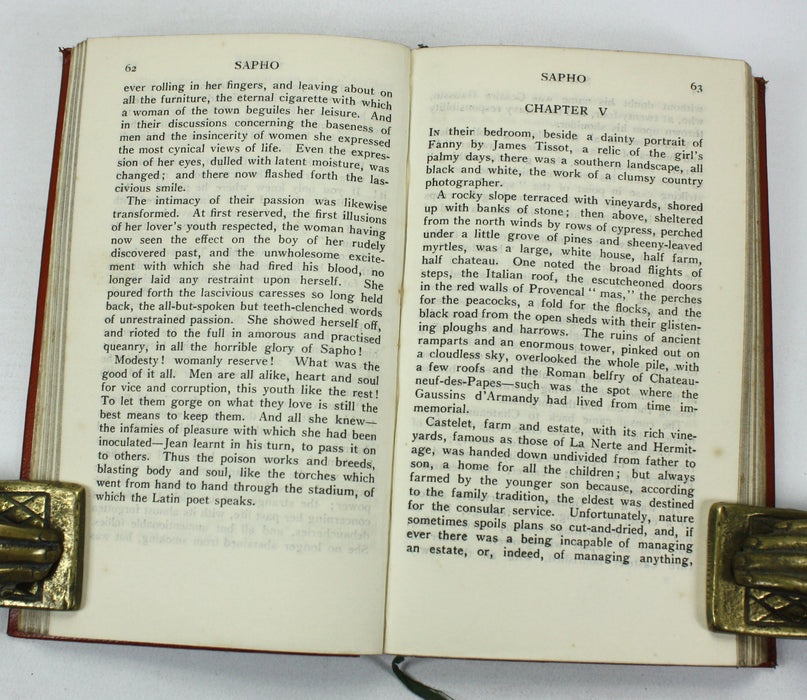 62 SAPHO
ever rolling in her fingers, and leaving about on
all the furniture, the eternal cigarette with which
a woman of the town beguiles her leisure. And
in their discussions concerning the baseness of
men and the insincerity of women she expressed
the most cynical views of life. Even the expres-
sion of her eyes, dulled with latent moisture, was
changed; and there now flashed forth the las-
civious smile.
The intimacy of their passion was likewise
transformed. At first reserved, the first illusions
of her lover's youth respected, the woman having
now seen the effect on the boy of her rudely
discovered past, and the unwholesome excite-
ment with which she had fired his blood, no
longer laid any restraint upon herself. She
poured forth the lascivious caresses so long held
back, the all-but-spoken but teeth-clenched words
of unrestrained passion. She showed herself off,
and rioted to the full in amorous and practised
queanry, in all the horrible glory of Sapho!
Modesty! womanly reserve! What was the
good of it all. Men are all alike, heart and soul
for vice and corruption, this youth like the rest!
To let them gorge on what they love is still the
best means to keep them. And all she knew—
the infamies of pleasure with which she had been
inoculated—Jean learnt in his turn, to pass it on
to others. Thus the poison works and breeds,
blasting body and soul, like the torches which
went from hand to hand through the stadium, of
which the Latin poet speaks.
SAPHO 63
CHAPTER V
In their bedroom, beside a dainty portrait of
Fanny by James Tissot, a relic of the girl's
palmy days, there was a southern landscape, all
black and white, the work of a clumsy country
photographer.
A rocky slope terraced with vineyards, shored
up with banks of stone; then above, sheltered
from the north winds by rows of cypress, perched
under a little grove of pines and sheeny-leaved
myrtles, was a large, white house, half farm,
half chateau. One noted the broad flights of
steps, the Italian roof, the escutcheoned doors
in the red walls of Provencal "mas," the perches
for the peacocks, a fold for the flocks, and the
black road from the open sheds with their glisten-
ing ploughs and harrows. The ruins of ancient
ramparts and an enormous tower, pinked out on
a cloudless sky, overlooked the whole pile, with
a few roofs and the Roman belfry of Chateau-
neuf-des-Papes—such was the spot where the
Gaussins d'Armandy had lived from time im-
memorial.
Castelet, farm and estate, with its rich vine-
yards, famous as those of La Nerte and Hermit-
age, was handed down undivided from father to
son, a home for all the children; but always
farmed by the younger son because, according
to the family tradition, the eldest was destined
for the consular service. Unfortunately, nature
sometimes spoils plans so cut-and-dried, and, if
ever there was a being incapable of managing
an estate, or, indeed, of managing anything,